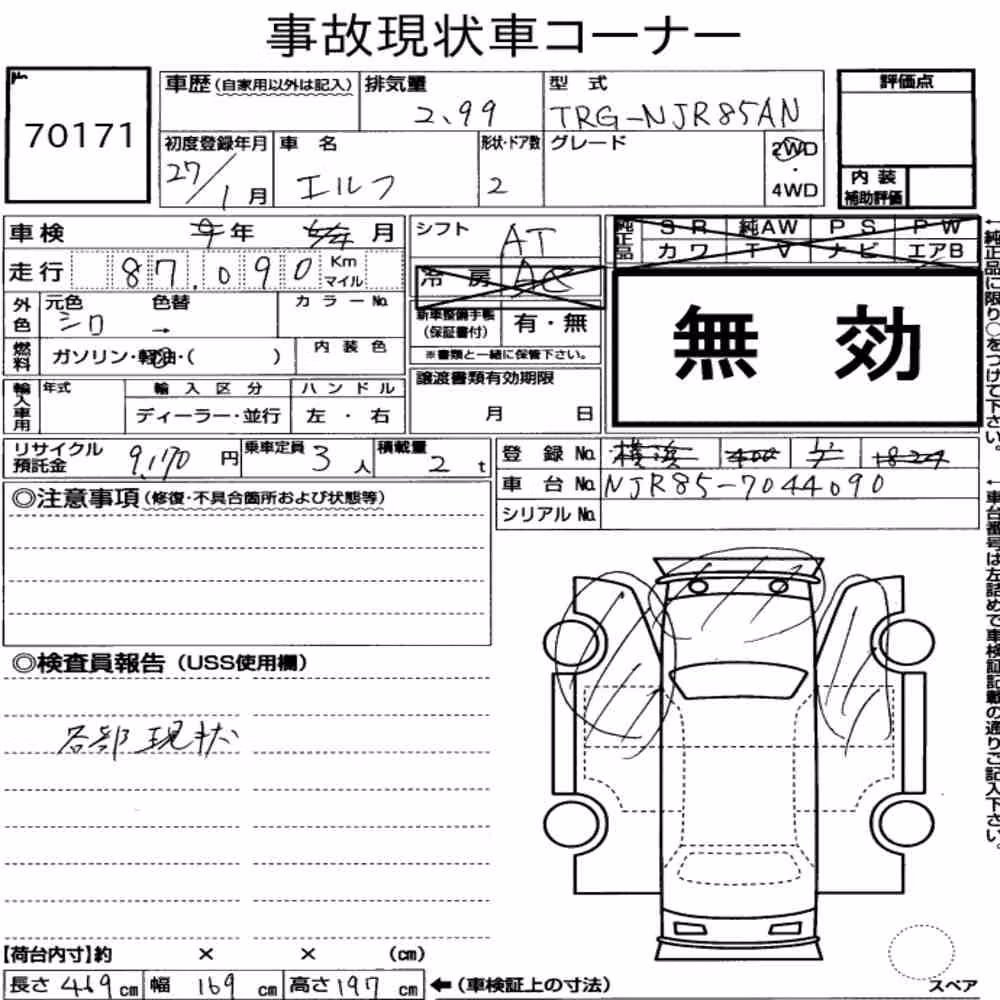 事故現状車コーナー
No
70171
車歴(自家用以外は記入) 排気量 型式 評価点
2.99 TRG-NJR85AN
初度登録年月 車名 形状・ドア数 グレード 2WD
27/1月 エルフ 2 ・
4WD 内装補助評価
車検 年 月 シフト AT 純正品 SR 純AW PS PW
カワ TV ナビ エアB
走行 87,090 Km マイル 冷房 AC
外色 元色 色替 カラーNo.
シロ → 新車整備手帳(保証書付) 有・無 無効
燃料 ガソリン・軽油・( ) 内装色 ※書類と一緒に保管下さい。
輸入車用 年式 輸入区分 ハンドル 譲渡書類有効期限
ディーラー・並行 左・右 月 日
リサイクル預託金 9,170円 乗車定員 3人 積載量 2t 登録No. 横浜 400 1824
車台No. NJR85-7044090
シリアルNo.
◎注意事項(修復・不具合箇所および状態等)
◎検査員報告(USS使用欄)
各部現状
【荷台内寸】約 × × (cm)
長さ 469cm 幅 169cm 高さ 197cm ←(車検証上の寸法)
スペア
←純正品に限り○をつけて下さい。
←車台番号は左詰めで車検証記載の通りご記入下さい。